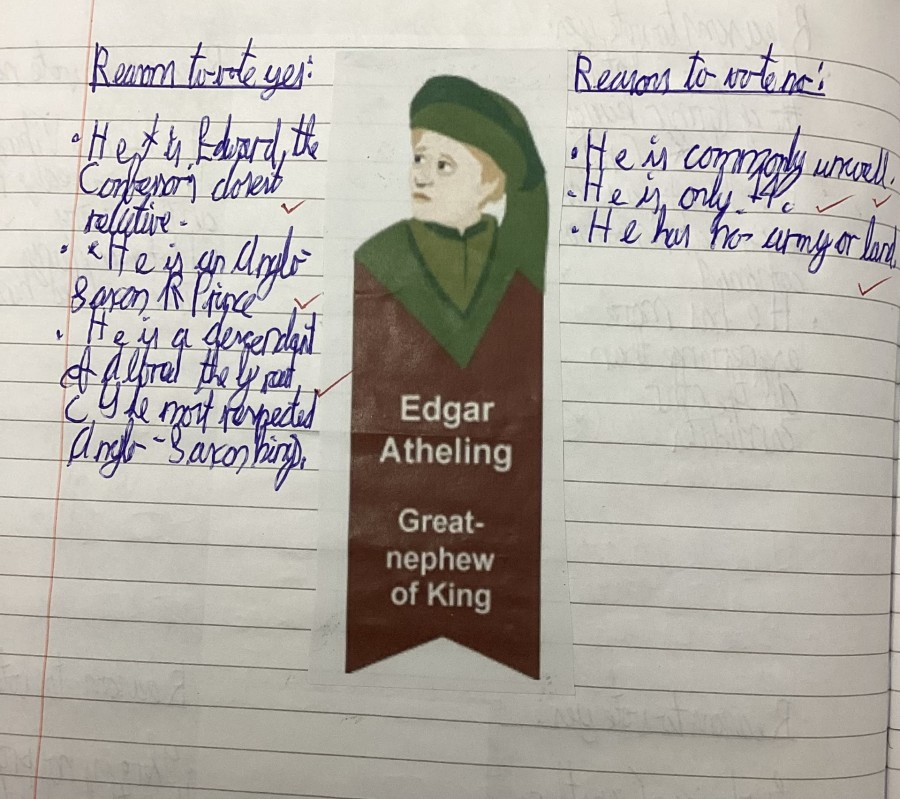 Reasons to vote yes:
• He is Edward the
Confessor's closest
relative.
• He is an Anglo-
Saxon Prince
• He is a descendant
of Alfred the Great,
the most respected
Anglo-Saxon king.
Edgar
Atheling
Great-
nephew
of King
Reasons to vote no:
• He is commonly unwell.
• He is only
• He has no army or land